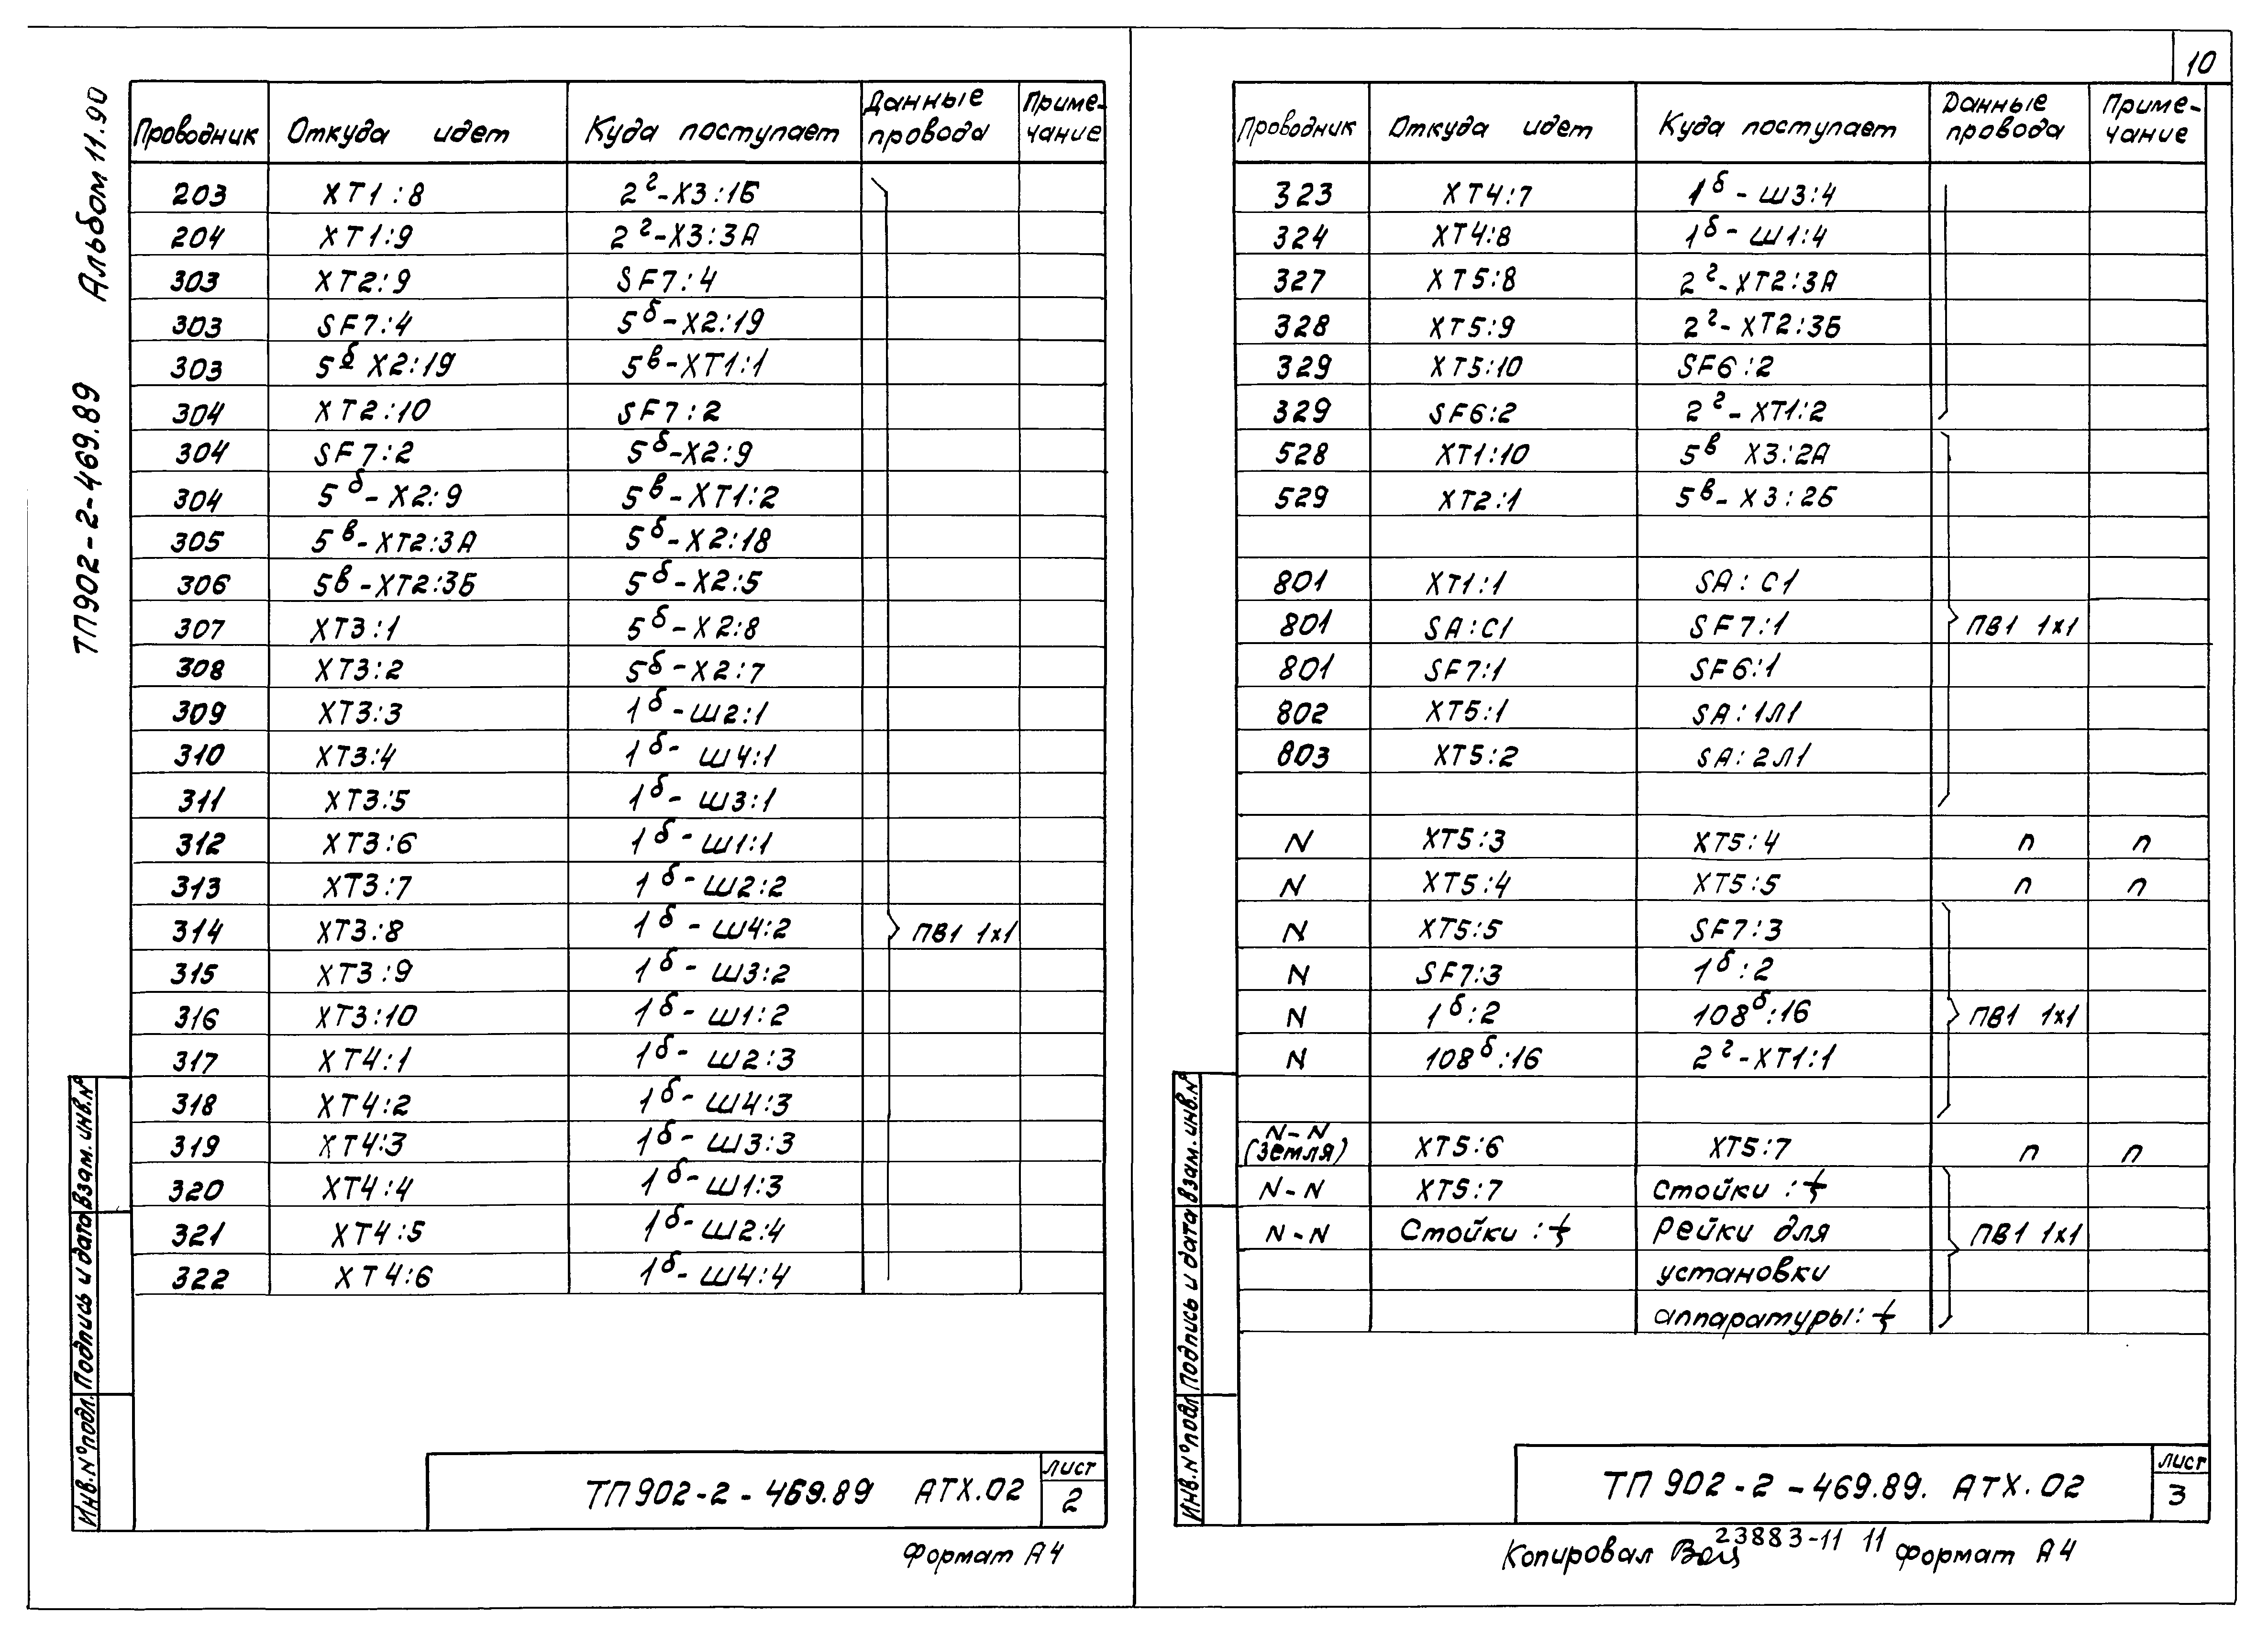 10
Альбом 11.90
ТП902-2-469.89
Проводник Откуда идет Куда поступает Данные провода Приме-чание
203 ХТ1:8 2г-Х3:1Б
204 ХТ1:9 2г-Х3:3А
303 ХТ2:9 SF7:4
303 SF7:4 5б-Х2:19
303 5б Х2:19 5в-ХТ1:1
304 ХТ2:10 SF7:2
304 SF7:2 5б-Х2:9
304 5б-Х2:9 5в-ХТ1:2
305 5в-ХТ2:3А 5б-Х2:18
306 5в-ХТ2:3Б 5б-Х2:5
307 ХТ3:1 5б-Х2:8
308 ХТ3:2 5б-Х2:7
309 ХТ3:3 1б-Ш2:1
310 ХТ3:4 1б- Ш4:1
311 ХТ3:5 1б- Ш3:1
312 ХТ3:6 1б- Ш1:1
313 ХТ3:7 1б-Ш2:2
314 ХТ3:8 1б- Ш4:2 ПВ1 1х1
315 ХТ3:9 1б- Ш3:2
316 ХТ3:10 1б- Ш1:2
317 ХТ4:1 1б- Ш2:3
318 ХТ4:2 1б- Ш4:3
319 ХТ4:3 1б- Ш3:3
320 ХТ4:4 1б-Ш1:3
321 ХТ4:5 1б-Ш2:4
322 ХТ4:6 1б-Ш4:4
Инв.N°подл. Подпись и дата Взам.инв.N°
ТП902-2-469.89 АТХ.02
Лист
2
Формат А4
Проводник Откуда идет Куда поступает Данные провода Приме-чание
323 ХТ4:7 1б-Ш3:4
324 ХТ4:8 1б-Ш1:4
327 ХТ5:8 2г-ХТ2:3А
328 ХТ5:9 2г-ХТ2:3Б
329 ХТ5:10 SF6:2
329 SF6:2 2г-ХТ1:2
528 ХТ1:10 5в Х3:2А
529 ХТ2:1 5в-Х3:2Б
801 ХТ1:1 SA:С1
801 SA:С1 SF7:1 ПВ1 1х1
801 SF7:1 SF6:1
802 ХТ5:1 SA:1Л1
803 ХТ5:2 SA:2Л1
N ХТ5:3 ХТ5:4 п п
N ХТ5:4 ХТ5:5 п п
N ХТ5:5 SF7:3
N SF7:3 1б:2
N 1б:2 108б:16 ПВ1 1х1
N 108б:16 2г-ХТ1:1
N-N
(Земля) ХТ5:6 ХТ5:7 п п
N-N ХТ5:7 Стойки :⏚
N-N Стойки :⏚ рейки для ПВ1 1х1
установки
аппаратуры:⏚
Инв.N°подл Подпись и дата Взам.инв.N°
ТП 902-2-469.89. АТХ.02
Лист
3
23883-11 11
Копировал Формат А4